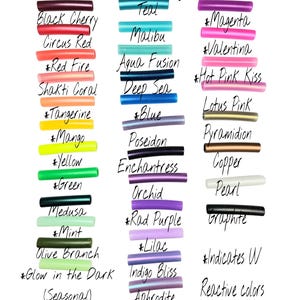 Black Cherry
Circus Red
*Red Fire
Shakti Coral
*Tangerine
*Mango
*Yellow
*Green
Medusa
*Mint
Olive Branch
*Glow in the Dark
(Seasonal)
Teal
Malibu
Aqua Fusion
Deep Sea
*Blue
Poseidon
Enchantress
Orchid
*Rad Purple
*Lilac
Indigo Bliss
Aphrodite
*Magenta
*Valentina
*Hot Pink Kiss
Lotus Pink
Pyramidion
Copper
Pearl
Graphite
*Indicates UV
Reactive colors